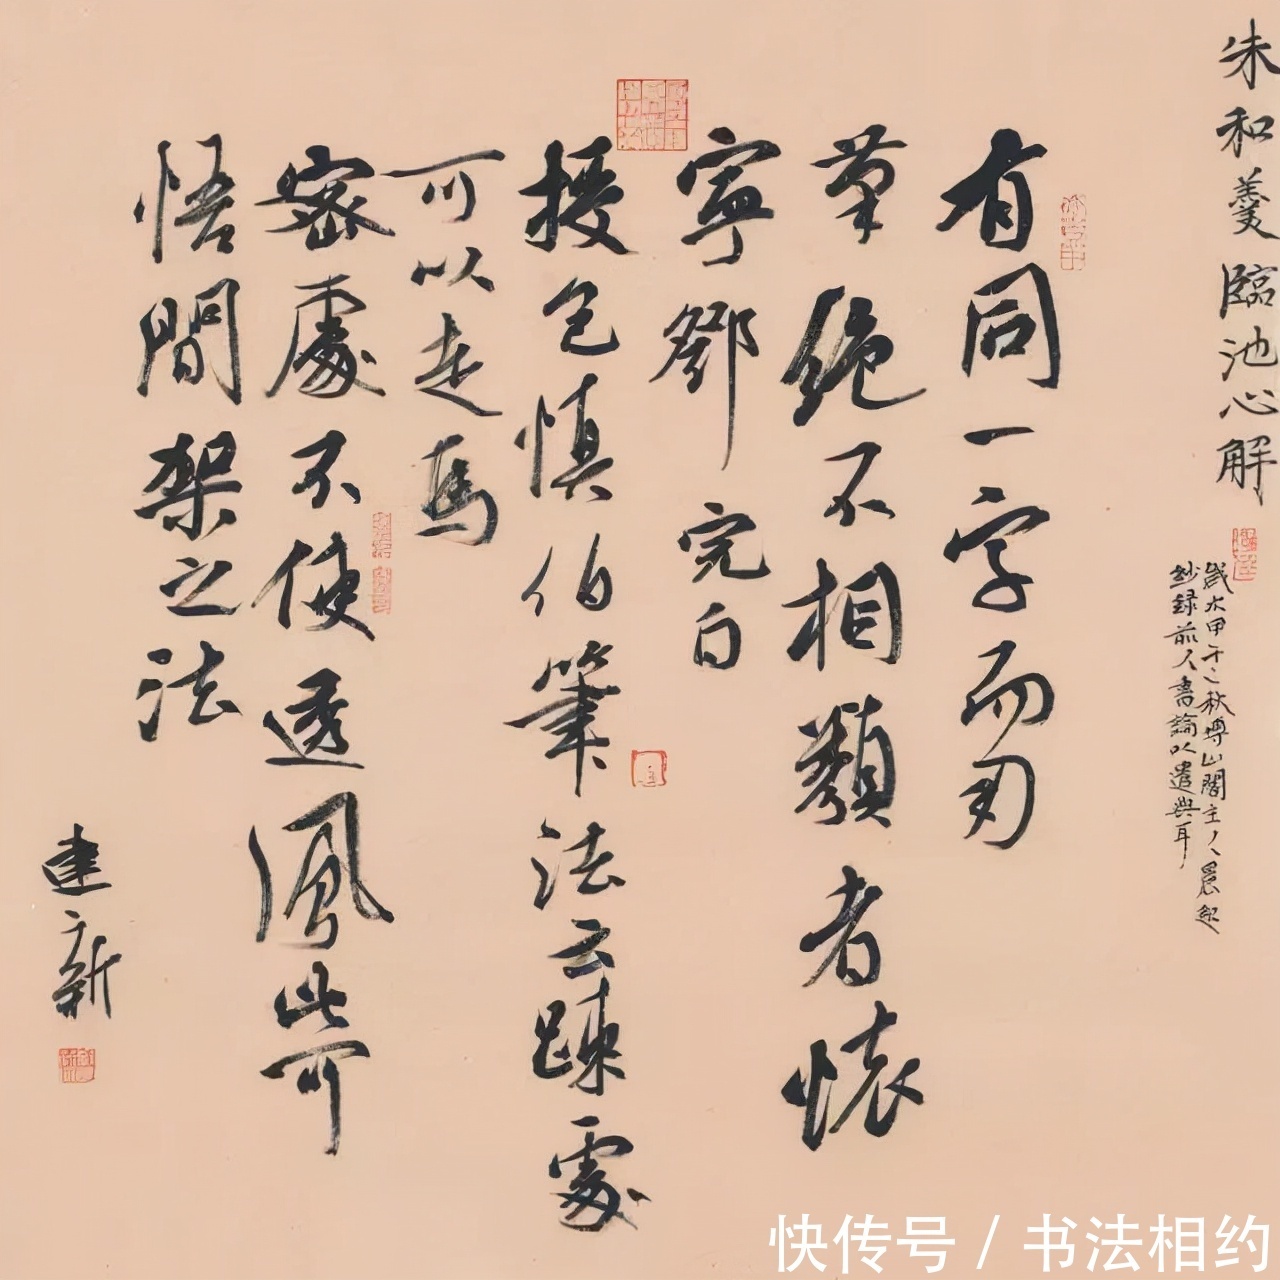 朱和羹臨池心解
歲次甲午之秋博山閣主人晨起
鈔録前人書論以遣興耳
有同一字而用
筆絶不相類者懷
寧鄧完白
授包慎伯筆法云踈處
可以走馬
密處不使透風此可
悟間架之法
建新
快传号 / 书法相约